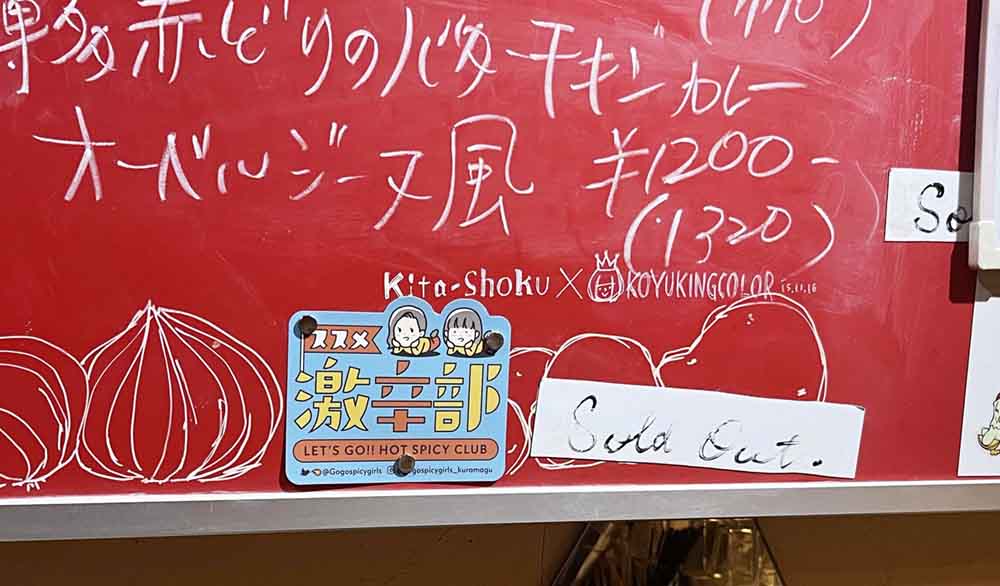 博多赤どりのバターチキンカレー
オーベルジーヌ風 ¥1200-
(1320)
So
Kita-Shoku × KOYUKINGCOLOR 15.11.16
ススメ
激辛部
LET'S GO!! HOT SPICY CLUB
@Gogospicygirls @gogospicygirls_kuramagu
Sold Out.